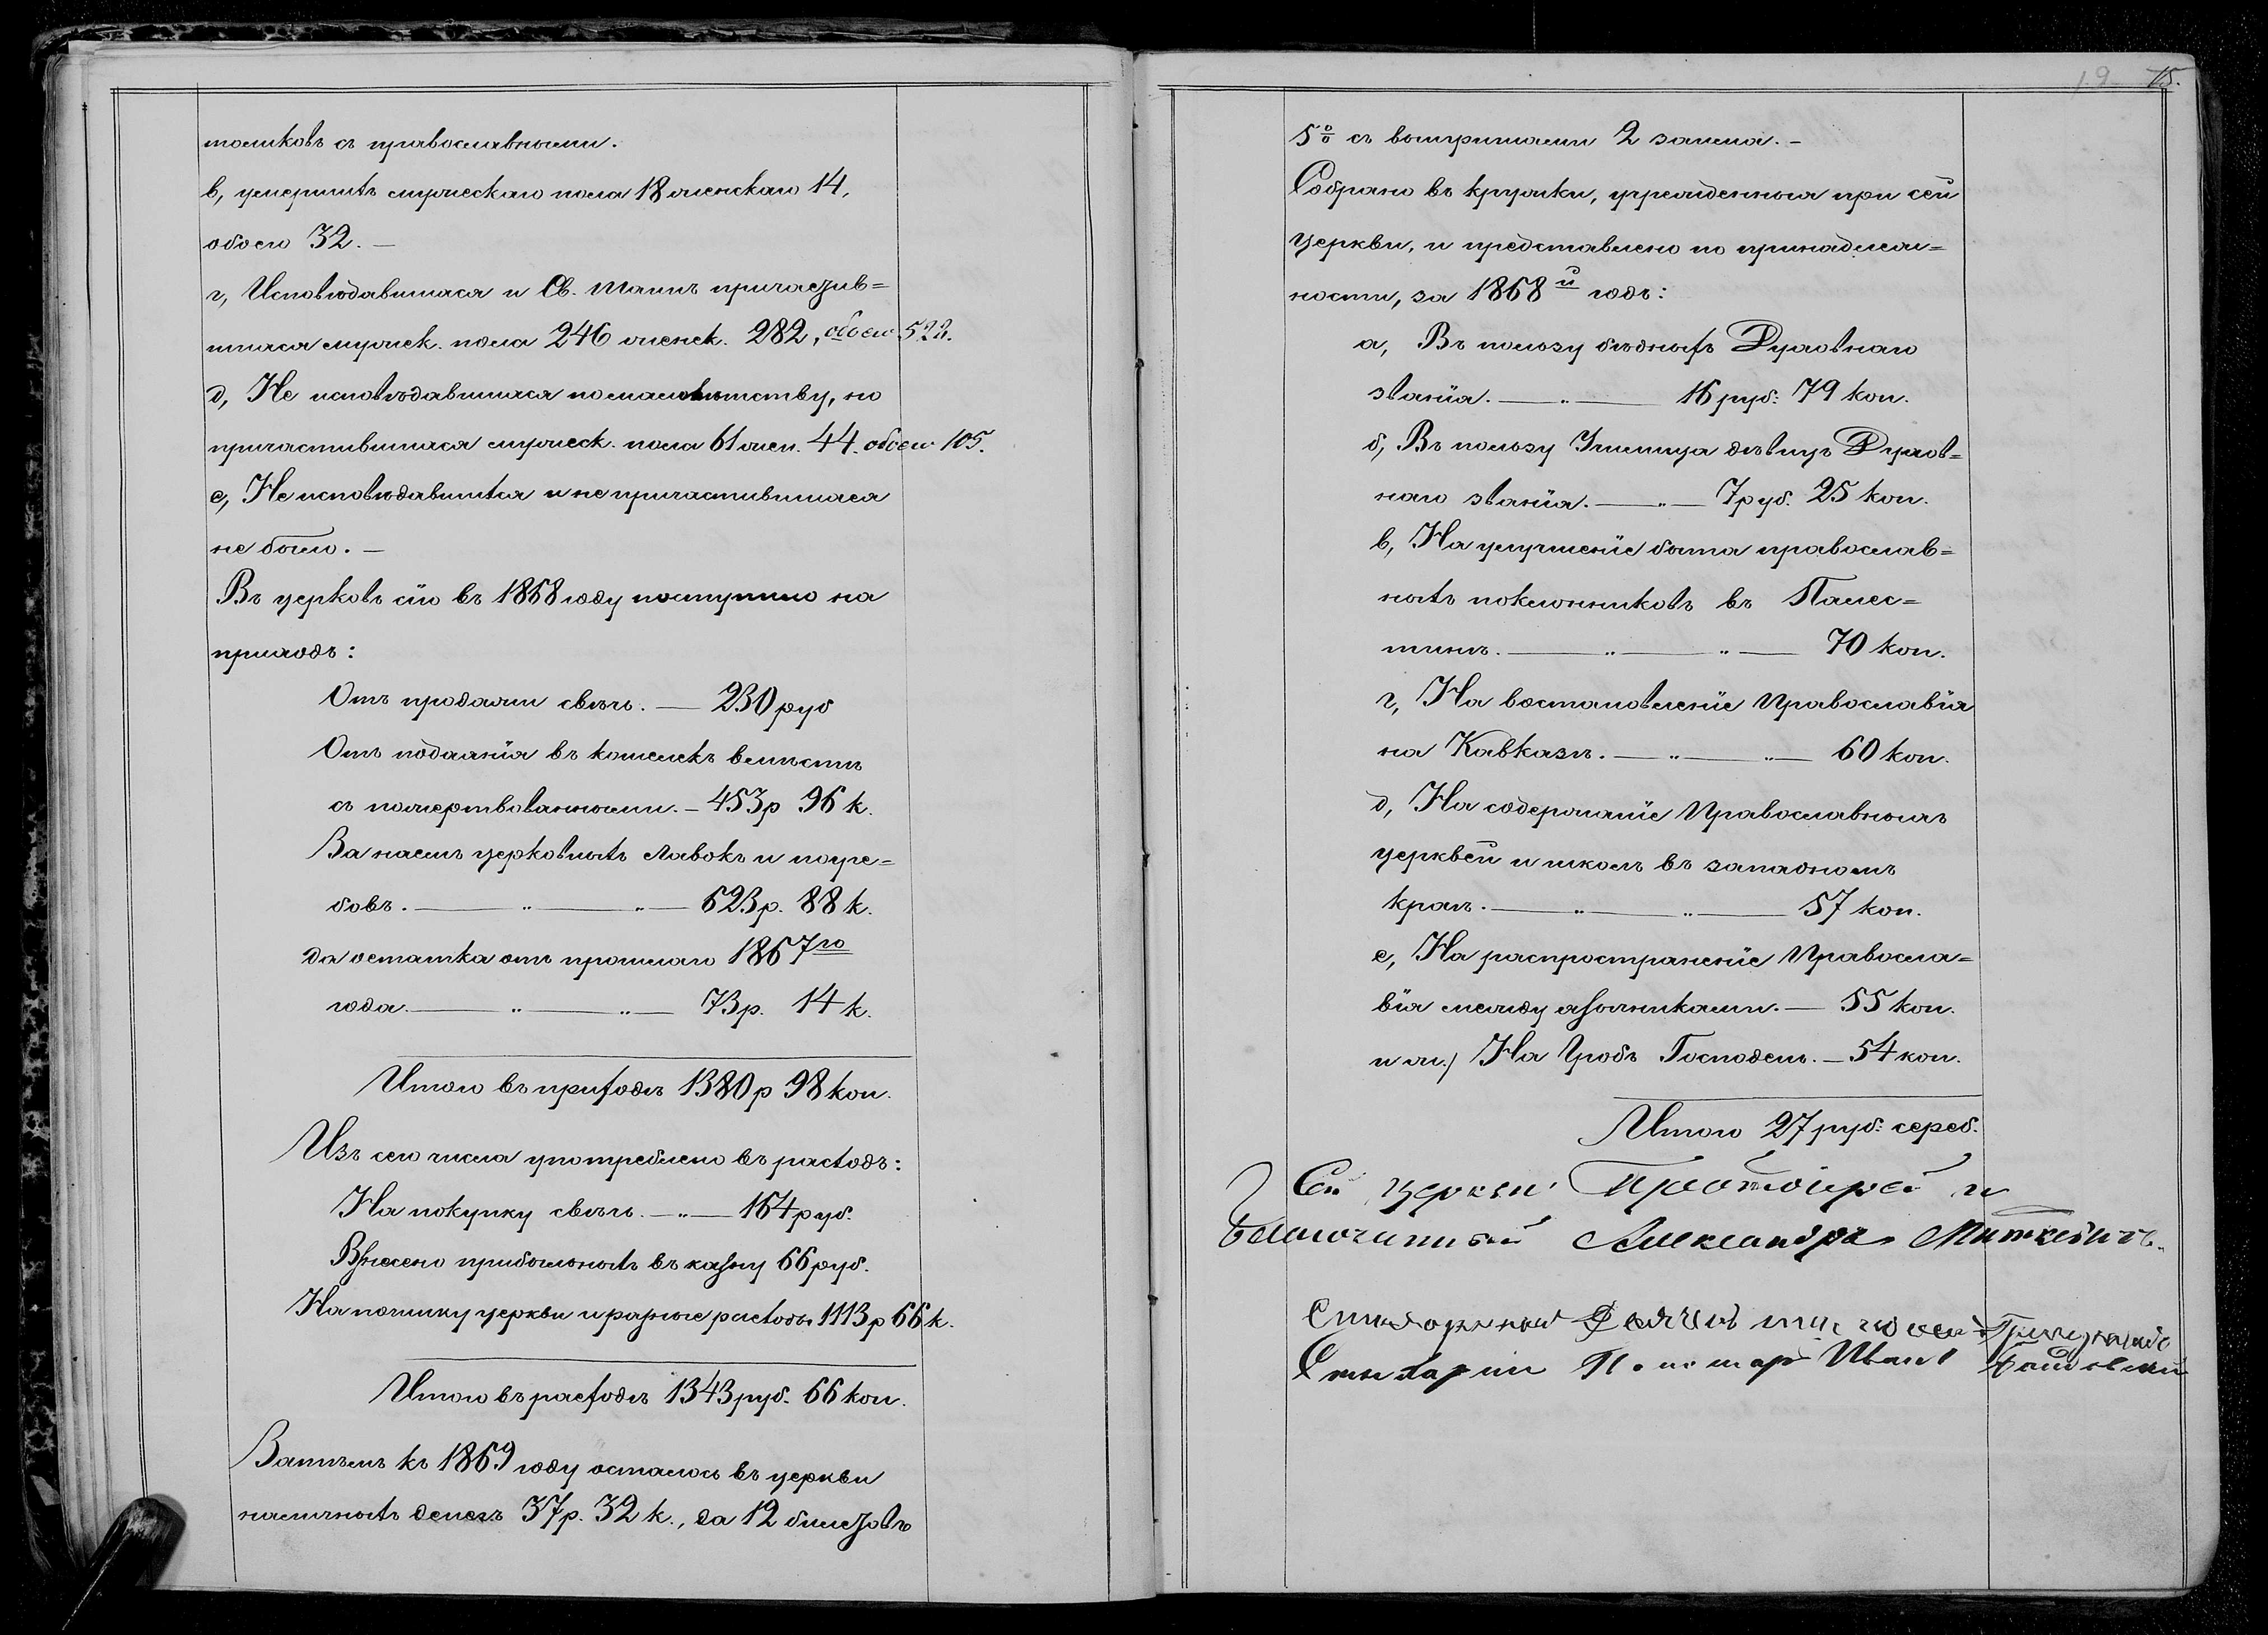 толиковъ съ православными.
в, умершихъ мужескаго пола 18 женскаго 14,
обоего 32. —
г, Исповѣдавшихся и Св. Таинъ причастив=
шихся мужеск. пола 246 женск. 282, обоего 522.
д, Не исповѣдавшихся по малолѣтству, но
причастившихся мужеск. пола 61 жен. 44. обоего 105.
е, Не исповѣдавшихся и не причастившихся
не было. —
Въ церковь сію въ 1868 году поступило на
приходъ:
Отъ продажи свѣчъ. — 230 руб
Отъ подаянія въ кошелекъ вмѣстѣ
съ пожертвованными. — 453 р 96 к.
За наемъ церковныхъ лавокъ и погре=
бовъ. — „ — „ — 623 р. 88 к.
да остатка отъ прошлаго 1867го
года. — „ — „ — 73 р. 14 к.
Итого въ приходѣ 1380 р 98 коп.
Изъ сего числа употреблено въ расходъ:
На покупку свѣчъ. — „ — 164 руб.
Взнесено прибыльныхъ въ казну 66 руб.
На починку церкви и разные расходы 1113 р 66 к.
Итого въ расходѣ 1343 руб. 66 коп.
Затѣмъ къ 1869 году осталось въ церкви
наличныхъ денегъ 37 р. 32 к., да 12 билетовъ
19 75.
5% съ выигрышами 2 займа. —
Собрано въ кружки, учрежденныя при сей
церкви, и представлено по принадлеж=
ности, за 1868й годъ:
а, Въ пользу бѣдныхъ Духовнаго
званія. — „ — 16 руб: 79 коп.
б, Въ пользу Училища дѣвицъ Духов=
наго званія. — „ — 7 руб. 25 коп.
в, На улучшеніе быта православ=
ныхъ поклонниковъ въ Палес=
тинѣ. — „ — „ — 70 коп.
г, На востановленіе Православія
на Кавказѣ. — „ — „ — 60 коп.
д, На содержаніе Православныхъ
церквей и школъ въ западномъ
краѣ. — „ — „ — 57 коп.
е, На распространеніе Правосла=
вія между язычниками. — 55 коп.
и ж) На Гробъ Господень. — 54 коп.
Итого 27 руб: сереб.
Сей церкви Протоіерей и
Благочинный Александръ Миткевичъ
Стихарный
Стихарный Пономарь Иванъ